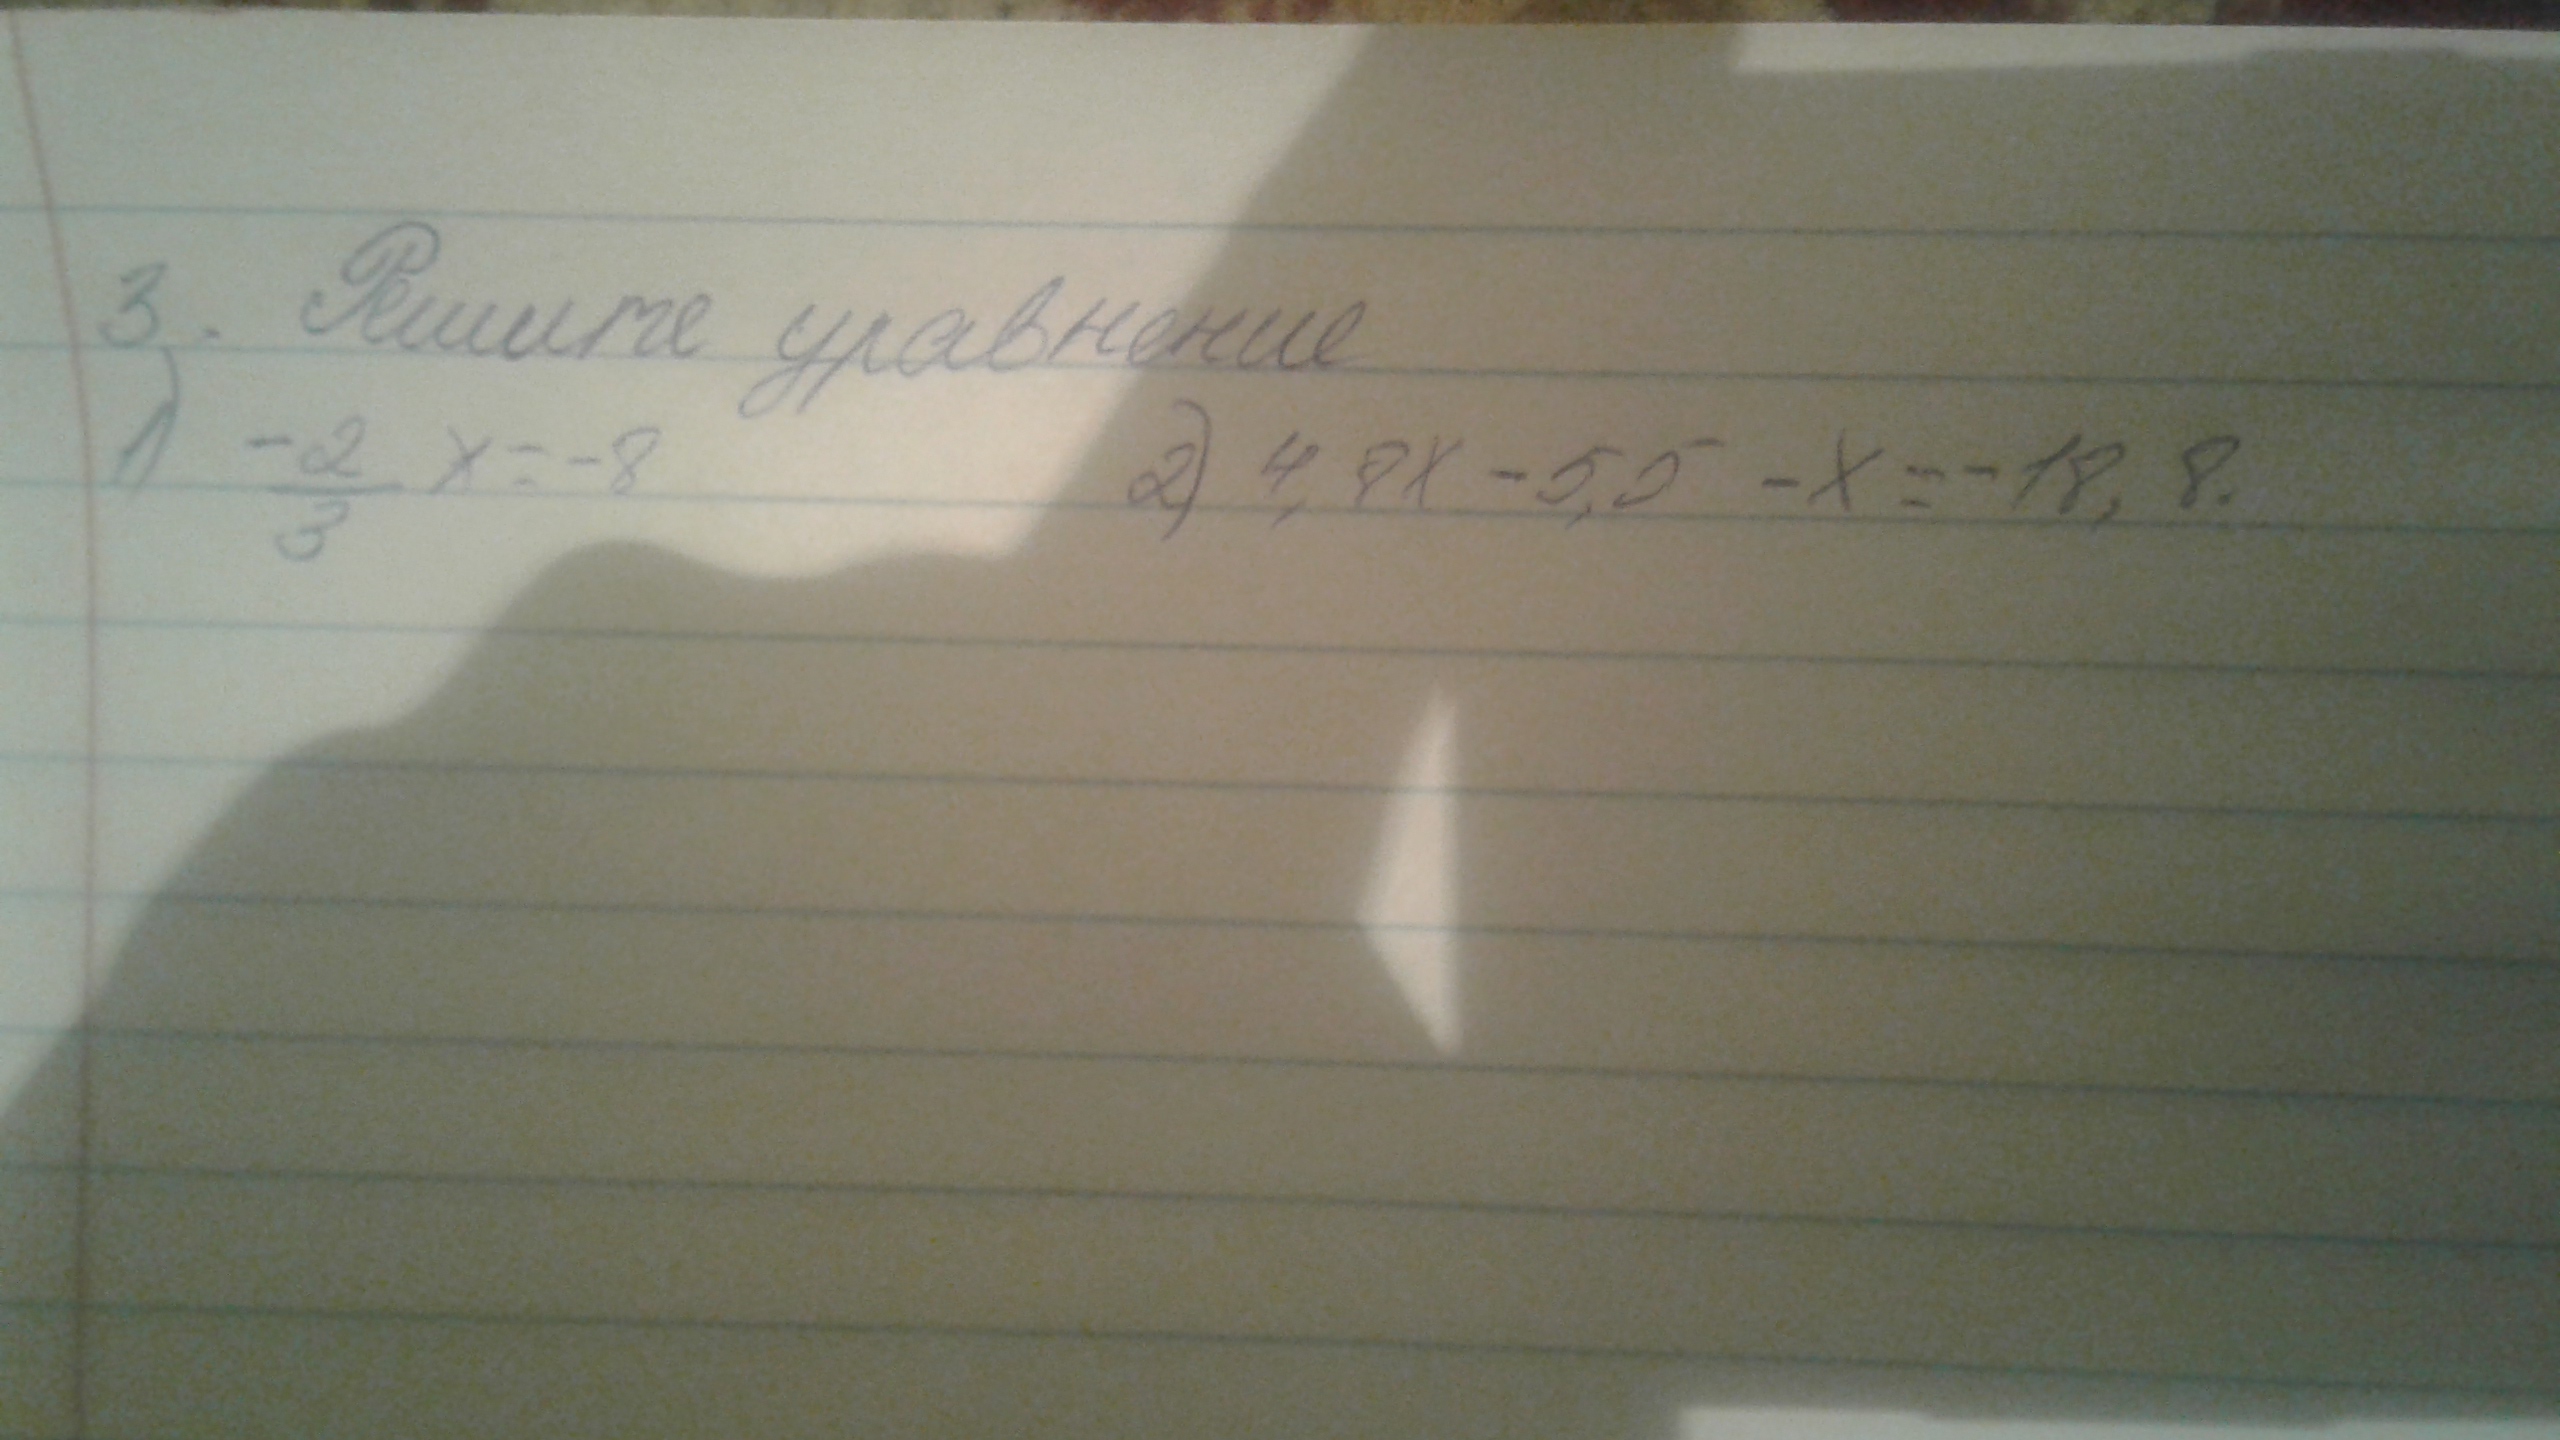 3. Решите уравнение
1) -2/3 x = -8 2) 4,8x - 5,5 - x = -18,8.